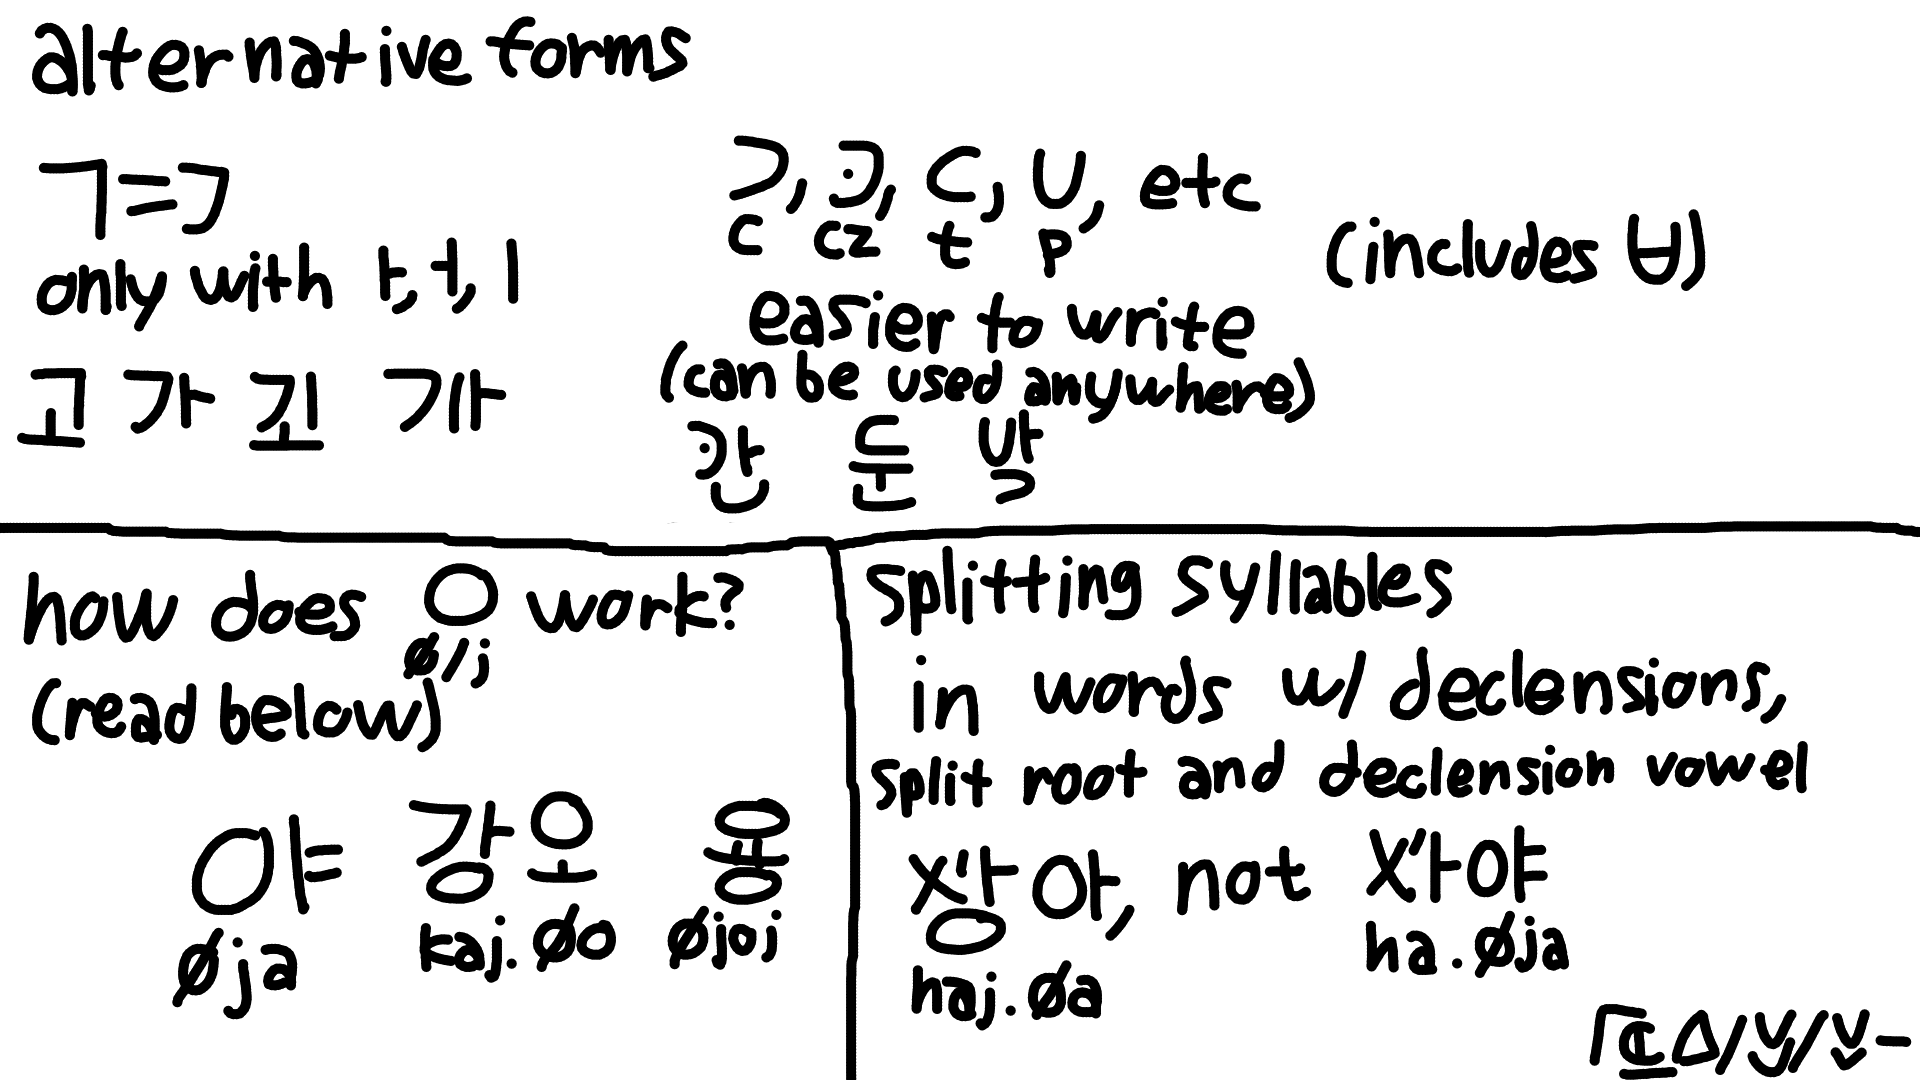 alternative forms
ㄱ=ㄱ
only with ㅏ, ㅓ, ㅣ
고 가 괴 갸
c cz t p
ㄷ, U, etc
(includes ㅂ)
easier to write
(can be used anywhere)
how does ㅇ work?
ø/j
(read below)
야 강오 용
øja kaj.øo øjoj
splitting syllables
in words w/ declensions,
split root and declension vowel
아, not 야
haj.øa
ha.øja